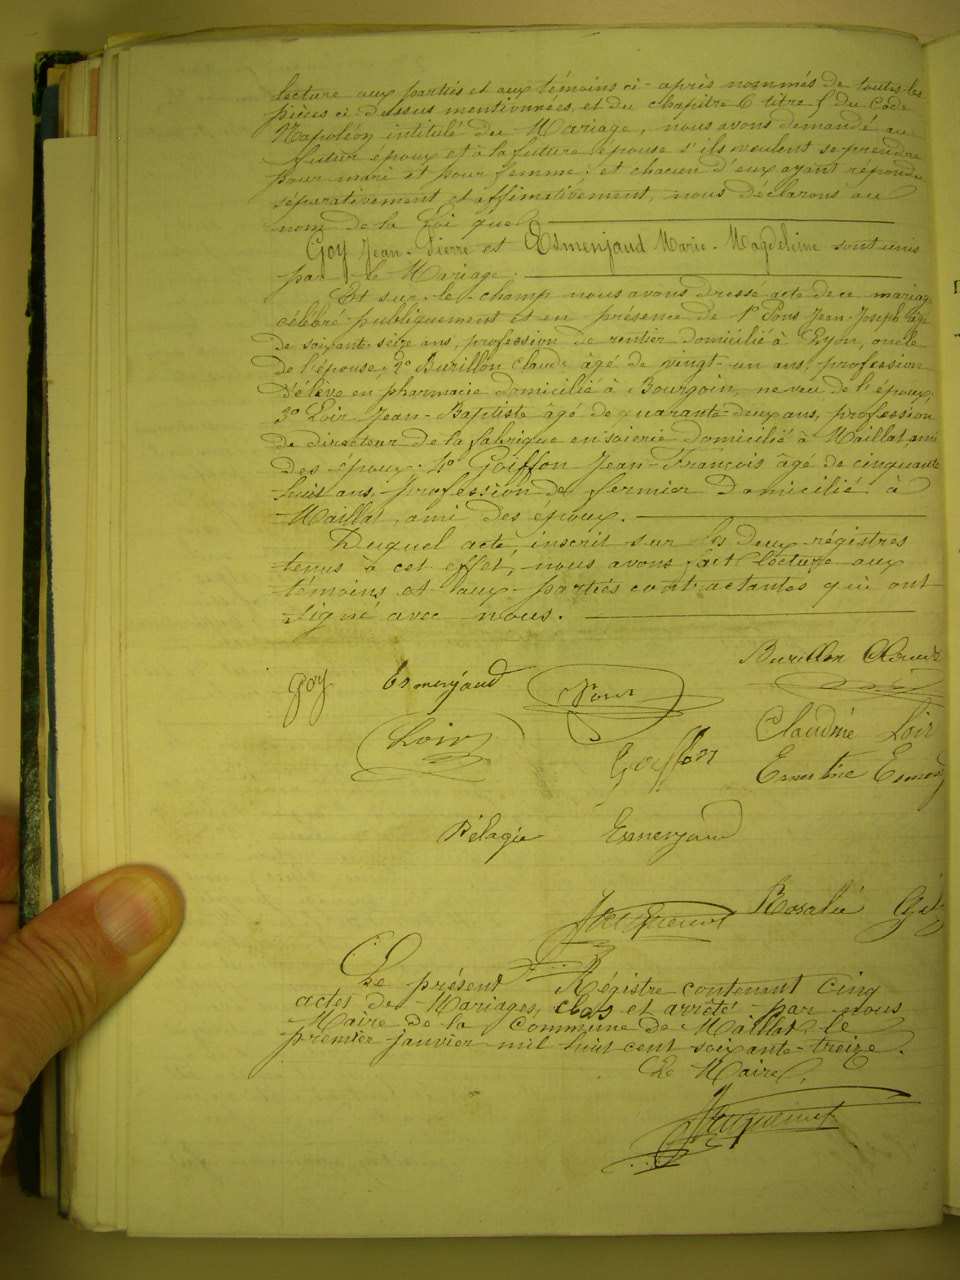 lecture aux parties et aux témoins ci-après nommés de toutes les
pièces ci dessus mentionnées et du chapitre 6 titre f du Code
Napoléon intitulé du Mariage, nous avons demandé au
futur époux et à la future épouse s'ils veulent se prendre
pour mari et pour femme; et chacun d'eux ayant répondu
séparativement et affimativement, nous déclarons au
nom de la Loi que
Goy Jean-Pierre et Esmenjaud Marie-Magdeleine sont unis
par le Mariage.
Et sur-le-champ nous avons dressé acte de ce mariage
célébré publiquement et en présence de 1º Pons Jean-Joseph âgé
de soixante-seize ans, profession de rentier domicilié à Lyon, oncle
de l'épouse, 2º Burillon Claude âgé de vingt-un ans, profession
d'élève en pharmacie domicilié à Bourgoin, neveu de l'époux,
3º Loir Jean-Baptiste âgé de quarante-deux ans, profession
de directeur de la fabrique en soierie domicilié à Maillat ami
des époux. 4º Goiffon Jean-François âgé de cinquante
huit ans, profession de fermier domicilié à
Maillat, ami des époux.
Duquel acte, inscrit sur les deux régistres
tenus à cet effet, nous avons fait lecture aux
témoins et aux parties contractantes qui ont
signé avec nous.
Burillon Claude
Goy Esmenjaud Pons
Claudine Loir
Loir Goiffon
Ernestine Esmenj
Pélagie Esmenjaud
Rosalie
Le présent Régistre contenant cinq
actes de Mariages, clos et arrêté par nous
Maire de la Commune de Maillat le
premier janvier mil huit cent soixante-treize.
Le Maire,